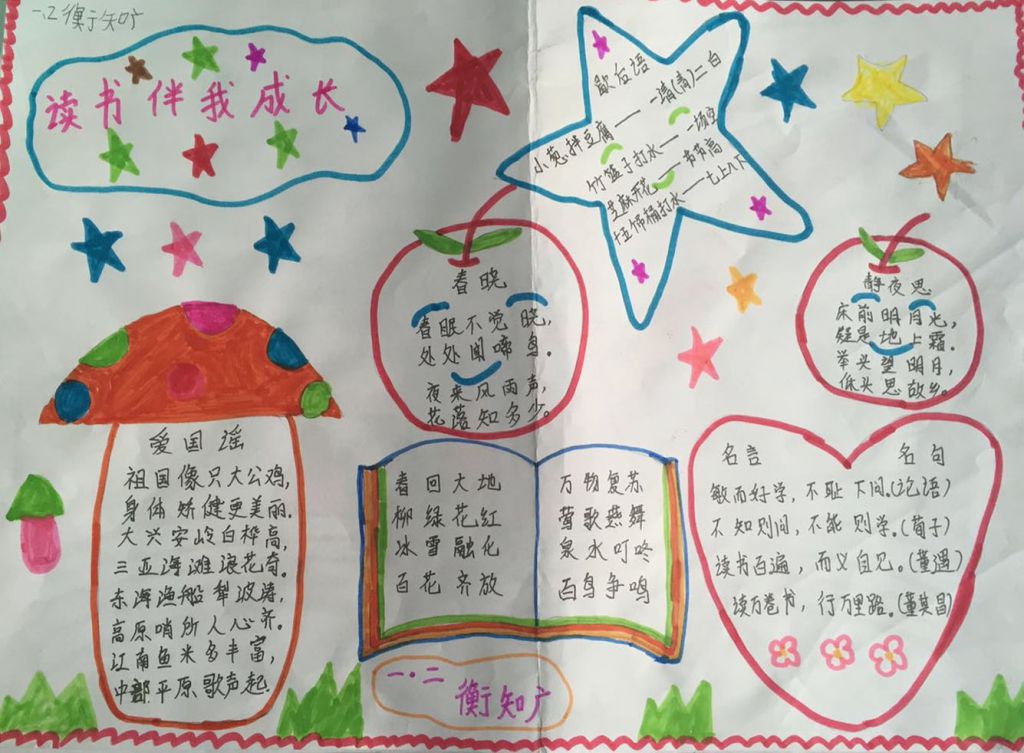 一.2 衡知广
读书伴我成长
歇后语
小葱拌豆腐——一清(青)二白
竹篮子打水——一场空
芝麻开花——节节高
十五吊桶打水——七上八下
春晓
春眠不觉晓,
处处闻啼鸟。
夜来风雨声,
花落知多少。
静夜思
床前明月光,
疑是地上霜.
举头望明月,
低头思故乡。
爱国谣
祖国像只大公鸡,
身体矫健更美丽.
大兴安岭白桦高,
三亚海滩浪花奇。
东海渔船犁波涛,
高原哨所人心齐.
江南鱼米多丰富,
中部平原歌声起.
春回大地
柳绿花红
冰雪融化
百花齐放
万物复苏
莺歌燕舞
泉水叮咚
百鸟争鸣
名言 名句
敏而好学,不耻下问.(论语)
不知则问,不能则学.(荀子)
读书百遍,而义自见.(董遇)
读万卷书,行万里路.(董其昌)
一.二
衡知广